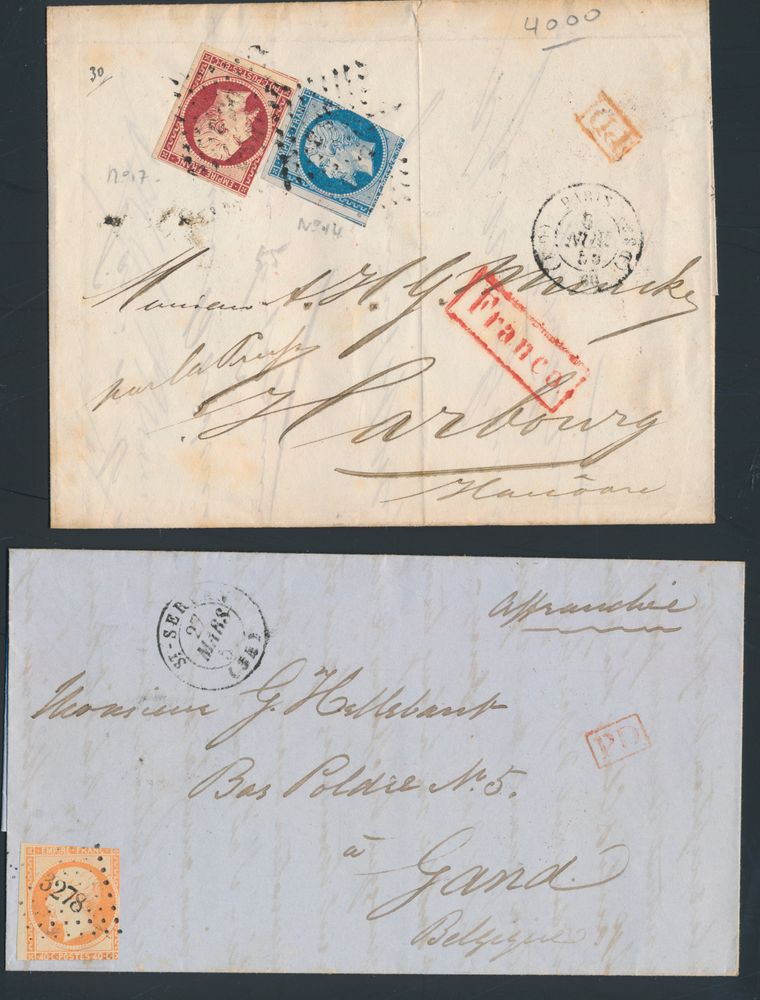 4000
30
EMPIRE FRANC
No 17
No 14
PD
PARIS
59
Monsieur A. H. G.
Franco
par la Prusse
Harbourg
Hanôvre
ST-SER
27
MARS
Affranchie
Monsieur G. Hellebaut
PD
Bas Poldre No. 5.
à
Gand
Belgique
EMPIRE FRANC
3278
40 C POSTES 40 C